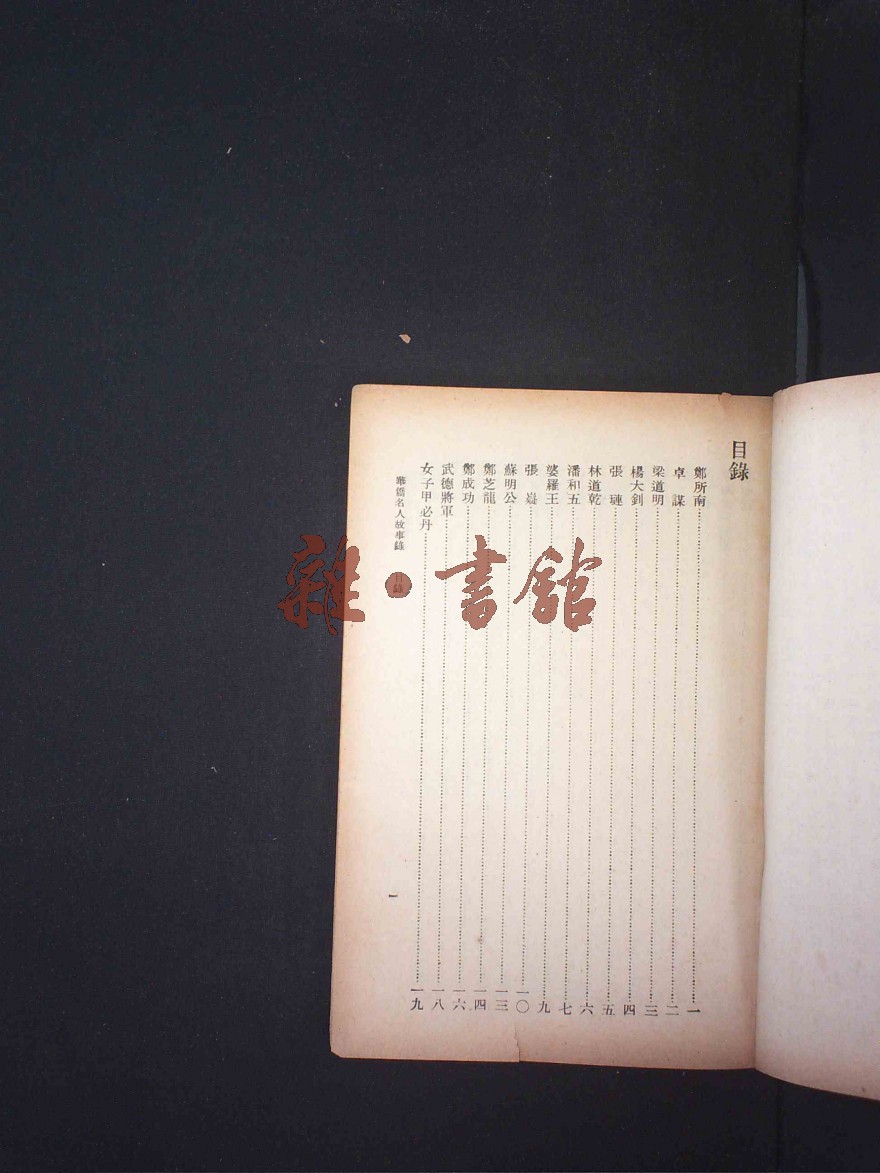 目錄
鄭所南……一
卓　謀……二
梁道明……三
楊大釗……四
張　璉……五
林道乾……六
潘和五……七
婆羅王……九
張　嶷……一〇
蘇明公……一三
鄭芝龍……一四
鄭成功……一六
武德將軍……一八
女子甲必丹……一九
華僑名人故事錄　目錄
一
雜·書館